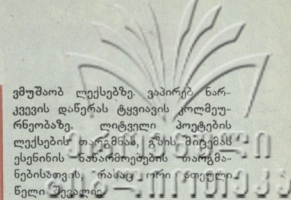 ვმუშაობ ლექსებზე. ვაპირებ ნარ-
კვევის დაწერას ტყვიავის კოლმეუ-
რნეობაზე. ლიტველი პოეტების
ლექსების თარგმნას, გზის მიცემას
ესენინის ნაწარმოებების თარგმა-
ნებისათვის, რასაც ორი ათეული
წელი შევალიე.